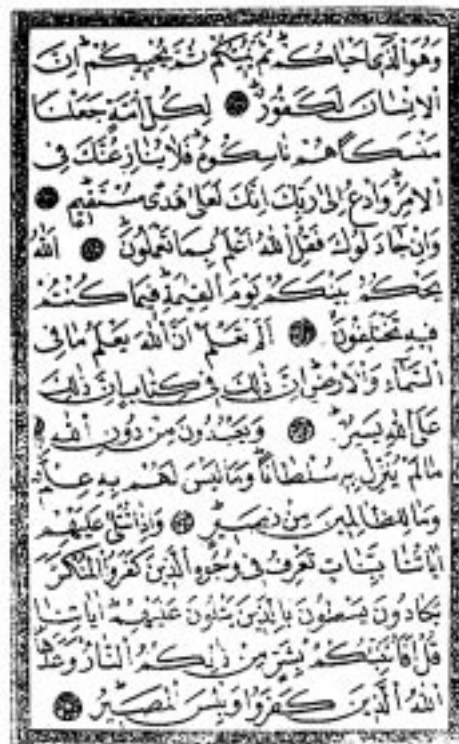 وَهُوَ الَّذِي أَحْيَاكُمْ ثُمَّ يُمِيتُكُمْ ثُمَّ يُحْيِيكُمْ إِنَّ
الْإِنْسَانَ لَكَفُورٌ لِكُلِّ أُمَّةٍ جَعَلْنَا
مَنْسَكًا هُمْ نَاسِكُوهُ فَلَا يُنَازِعُنَّكَ فِي
الْأَمْرِ وَادْعُ إِلَى رَبِّكَ إِنَّكَ لَعَلَى هُدًى مُسْتَقِيمٍ
وَإِنْ جَادَلُوكَ فَقُلِ اللَّهُ أَعْلَمُ بِمَا تَعْمَلُونَ اللَّهُ
يَحْكُمُ بَيْنَكُمْ يَوْمَ الْقِيٰمَةِ فِيمَا كُنْتُمْ
فِيهِ تَخْتَلِفُونَ أَلَمْ تَعْلَمْ أَنَّ اللَّهَ يَعْلَمُ مَا فِي
السَّمَاءِ وَالْأَرْضِ إِنَّ ذَلِكَ فِي كِتَابٍ إِنَّ ذَلِكَ
عَلَى اللَّهِ يَسِيرٌ وَيَعْبُدُونَ مِنْ دُونِ اللَّهِ
مَا لَمْ يُنَزِّلْ بِهِ سُلْطَانًا وَمَا لَيْسَ لَهُمْ بِهِ عِلْمٌ
وَمَا لِلظَّالِمِينَ مِنْ نَصِيرٍ وَإِذَا تُتْلَى عَلَيْهِمْ
اٰيَاتُنَا بَيِّنَاتٍ تَعْرِفُ فِي وُجُوهِ الَّذِينَ كَفَرُوا الْمُنْكَرَ
يَكَادُونَ يَسْطُونَ بِالَّذِينَ يَتْلُونَ عَلَيْهِمْ اٰيَاتِنَا
قُلْ أَفَأُنَبِّئُكُمْ بِشَرٍّ مِنْ ذَلِكُمُ النَّارُ وَعَدَهَا
اللَّهُ الَّذِينَ كَفَرُوا وَبِئْسَ الْمَصِيرُ